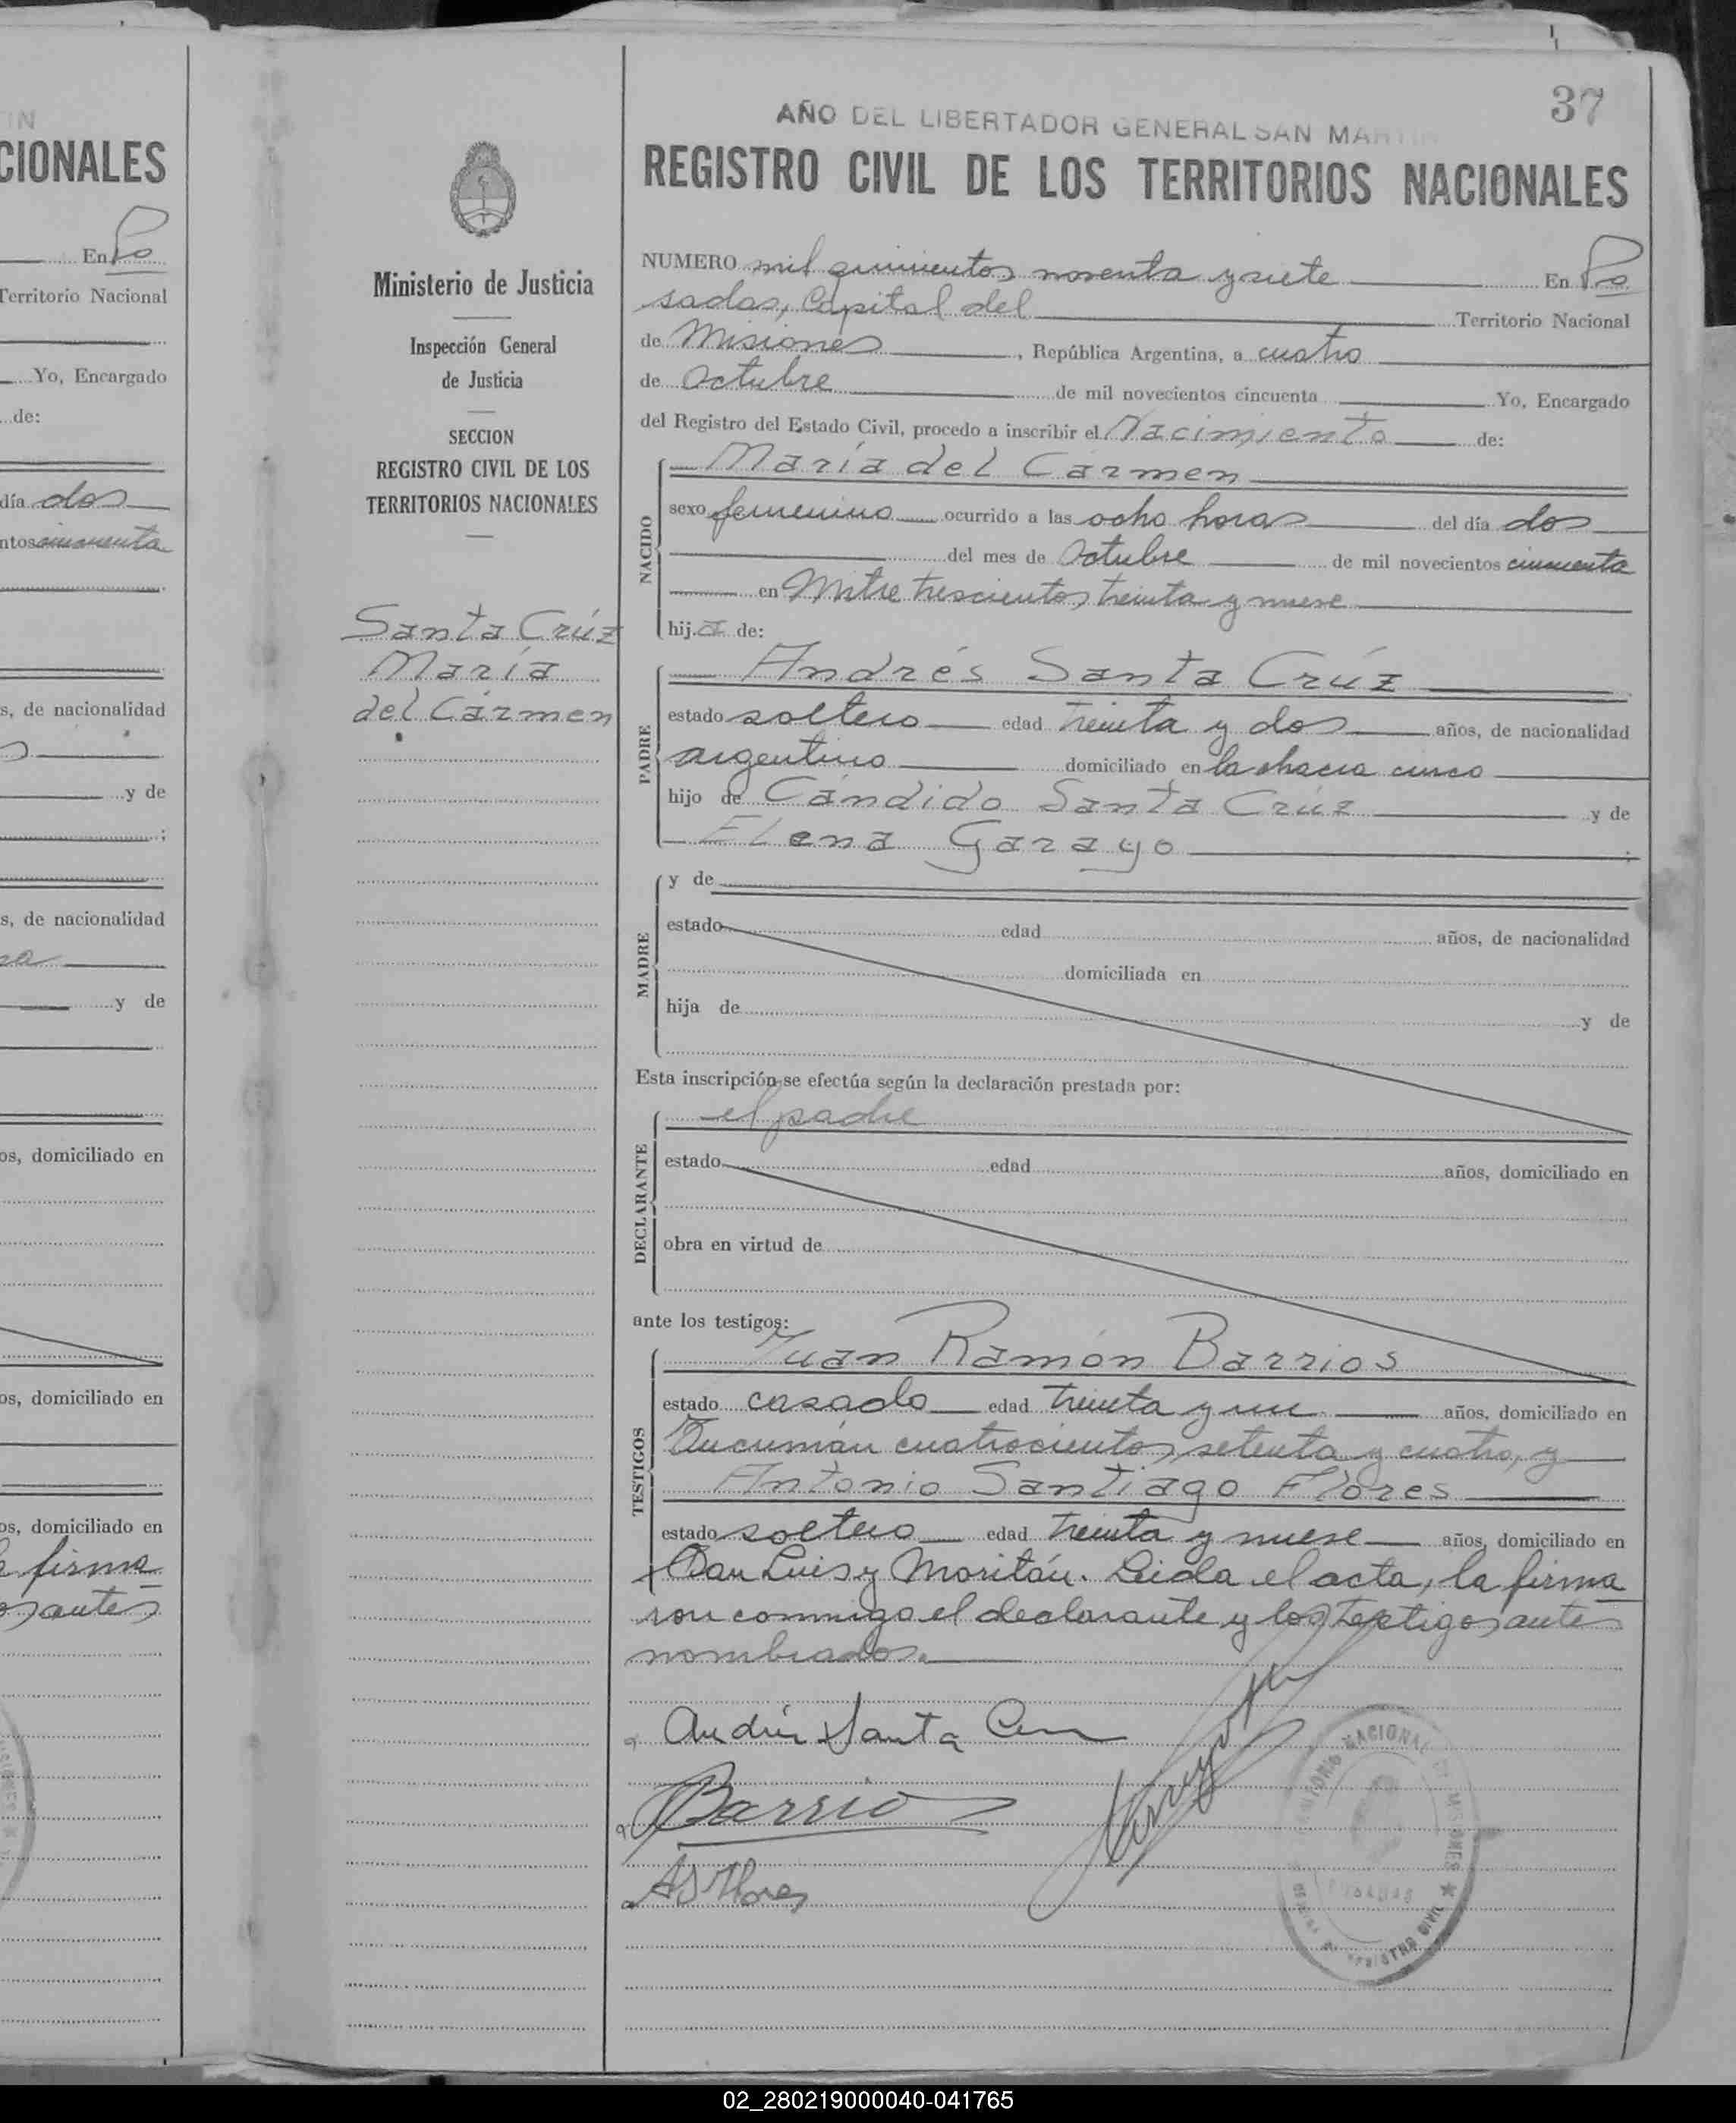 TIN
CIONALES
En Po
Territorio Nacional
Yo, Encargado
de:
día dos
ntos cincuenta
s, de nacionalidad
y de
s, de nacionalidad
y de
os, domiciliado en
os, domiciliado en
os, domiciliado en
a firma
antes
37
AÑO DEL LIBERTADOR GENERAL SAN MARTIN
REGISTRO CIVIL DE LOS TERRITORIOS NACIONALES
Ministerio de Justicia
Inspección General
de Justicia
SECCION
REGISTRO CIVIL DE LOS
TERRITORIOS NACIONALES
Santa Crúz
María
del Cármen
NUMERO mil quinientos noventa y siete En Po
sadas, Capital del Territorio Nacional
de Misiones, República Argentina, a cuatro
de Octubre de mil novecientos cincuenta Yo, Encargado
del Registro del Estado Civil, procedo a inscribir el Nacimiento de:
NACIDO
María del Cármen
sexo femenino ocurrido a las ocho horas del día dos
del mes de Octubre de mil novecientos cincuenta
en Mitre trescientos treinta y nueve
hija de:
PADRE
Andrés Santa Crúz
estado soltero edad treinta y dos años, de nacionalidad
argentino domiciliado en la chacra cinco
hijo de Cándido Santa Crúz y de
Elena Garayo ;
MADRE
y de
estado edad años, de nacionalidad
domiciliada en
hija de y de
Esta inscripción se efectúa según la declaración prestada por:
DECLARANTE
el padre
estado edad años, domiciliado en
obra en virtud de
ante los testigos:
TESTIGOS
Juan Ramón Barrios
estado casado edad treinta y un años, domiciliado en
Tucumán cuatrocientos setenta y cuatro, y
Antonio Santiago Flores
estado soltero edad treinta y nueve años, domiciliado en
San Luis y Moritán. Leida el acta, la firma
ron conmigo el declarante y los testigos antes
nombrados.
Andrés Santa Cruz
Barrios
AS Flores
TERRITORIO NACIONAL DE MISIONES
POSADAS
REGISTRO CIVIL
02_280219000040-041765